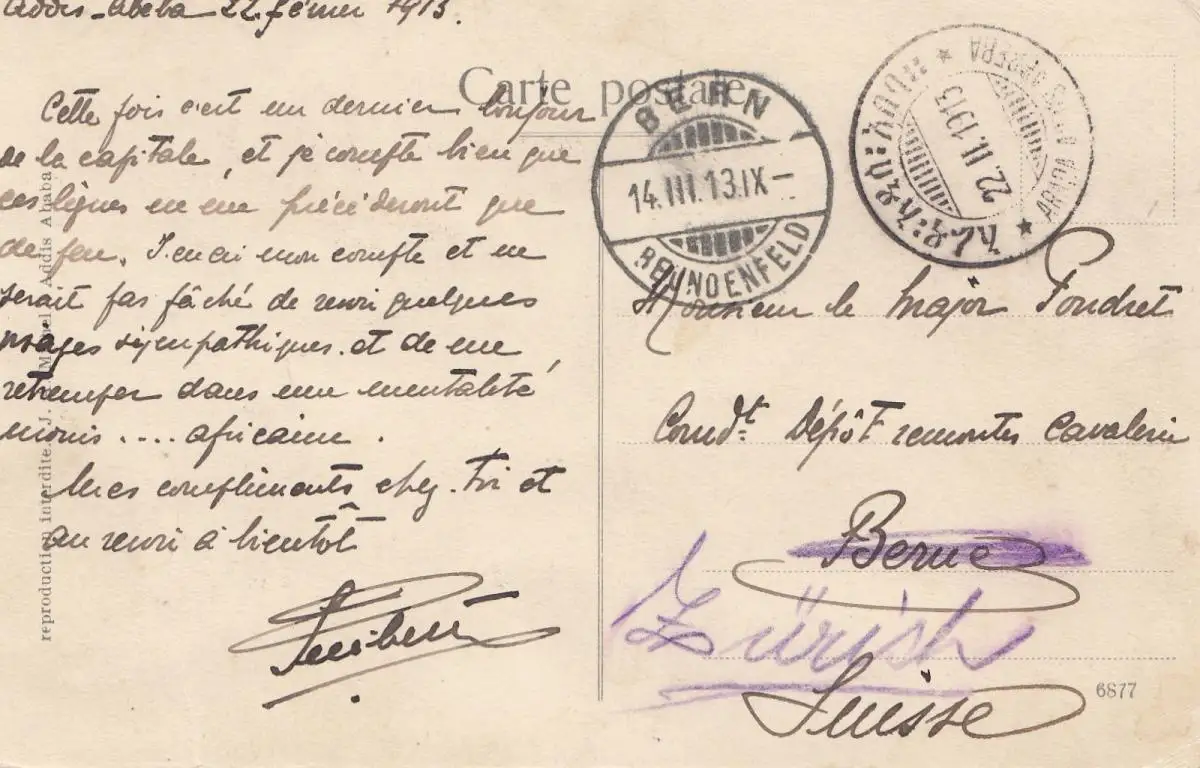 Addis-Abeba 22 février 1913.
Carte postale
Cette fois c'est un dernier bonjour
de la capitale, et je compte bien que
ces lignes ne me précéderont que
de peu. J'en ai mon compte et ne
serait pas fâché de revoir quelques
visages sympathiques et de me
retremper dans une mentalité
moins .... africaine.
Mes compliments chez Toi et
au revoir à bientôt
reproduction interdite J. Addis Ababa
BERN
14.III.13.IX–
BEUNDENFELD
22.II.1913
ARADA
Monsieur le Major Poudret
Comdt. Dépôt remontes Cavalerie
Berne
Zürich
Suisse
6877